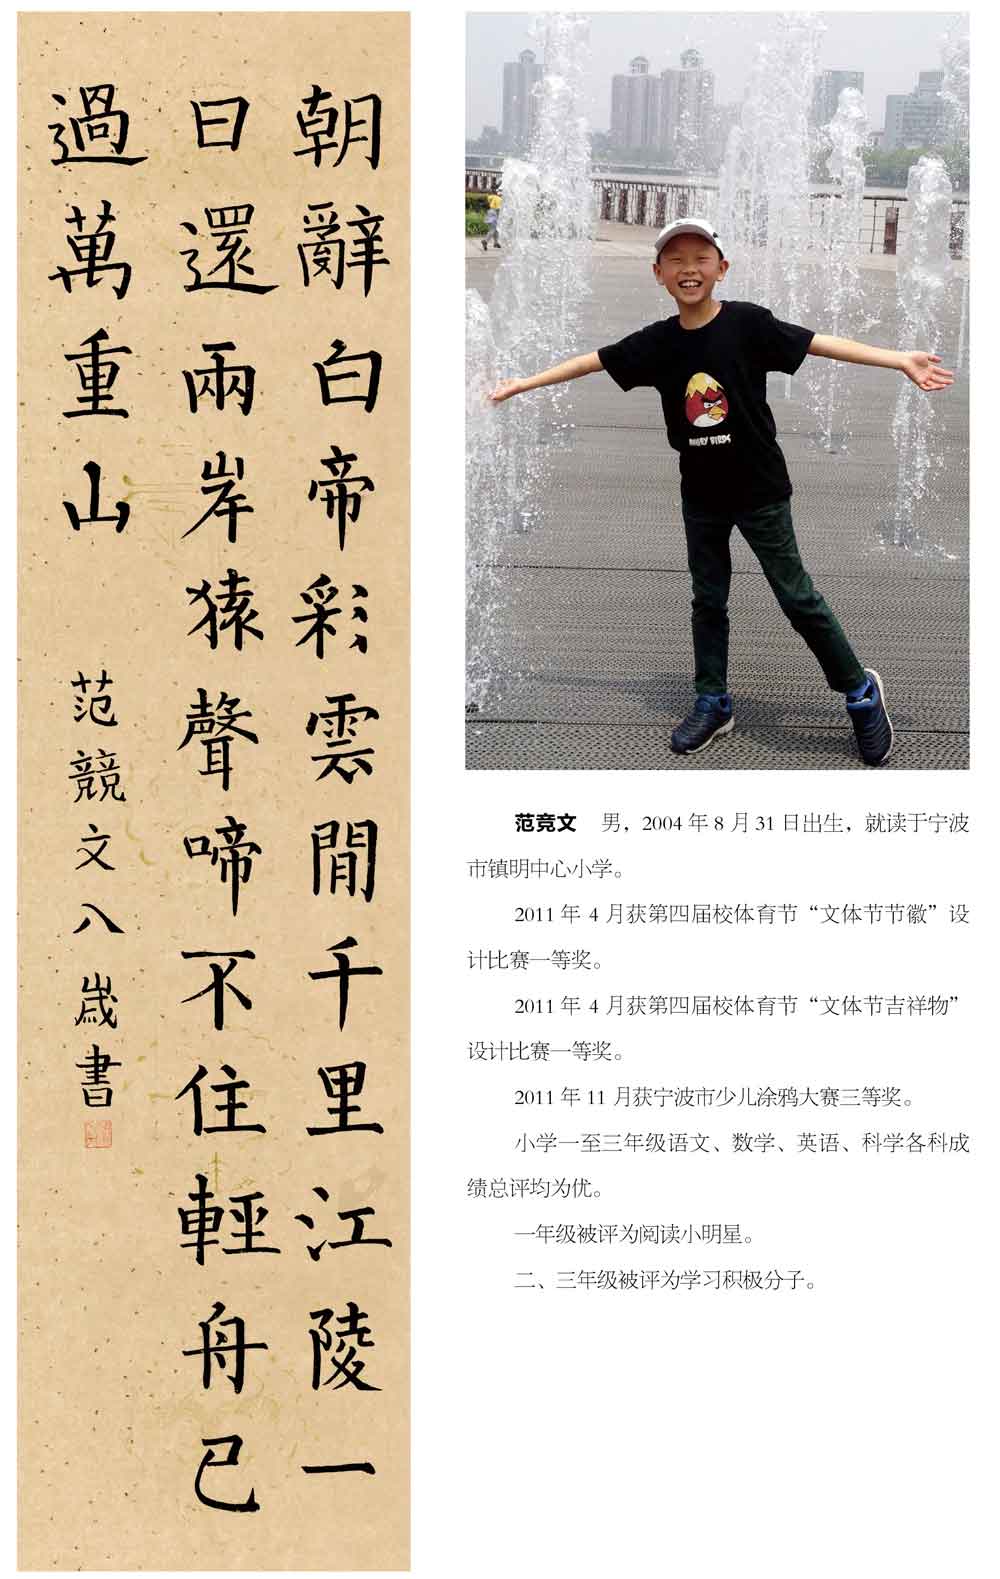 朝辭白帝彩雲間千里江陵一
日還兩岸猿聲啼不住輕舟已
過萬重山
范競文八歲書
ANGRY BIRDS
范竞文 男，2004 年 8 月 31 日出生，就读于宁波
市镇明中心小学。
2011 年 4 月获第四届校体育节“文体节节徽”设
计比赛一等奖。
2011 年 4 月获第四届校体育节“文体节吉祥物”
设计比赛一等奖。
2011 年 11 月获宁波市少儿涂鸦大赛三等奖。
小学一至三年级语文、数学、英语、科学各科成
绩总评均为优。
一年级被评为阅读小明星。
二、三年级被评为学习积极分子。